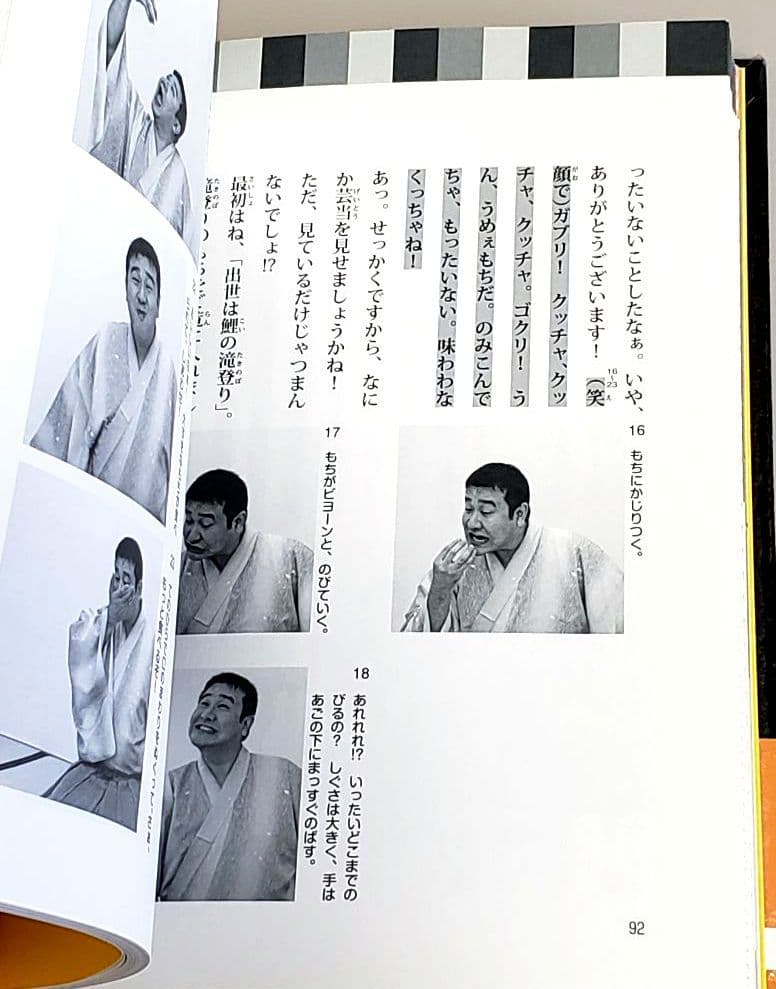 ったいないことしたなぁ。いや、
ありがとうございます！（笑
顔で）ガブリ！　クッチャ、クッ
チャ、クッチャ。ゴクリ！　う
ん、うめぇもちだ。のみこんで
ちゃ、もったいない。味わわな
くっちゃね！
あっ。せっかくですから、なに
か芸当を見せましょうかね！
ただ、見ているだけじゃつまん
ないでしょ!?
最初はね、「出世は鯉の滝登り」。
16　もちにかじりつく。
17　もちがビヨーンと、のびていく。
18　あれれれ!?　いったいどこまでの
びるの？　しぐさは大きく、手は
あごの下にまっすぐのばす。
92